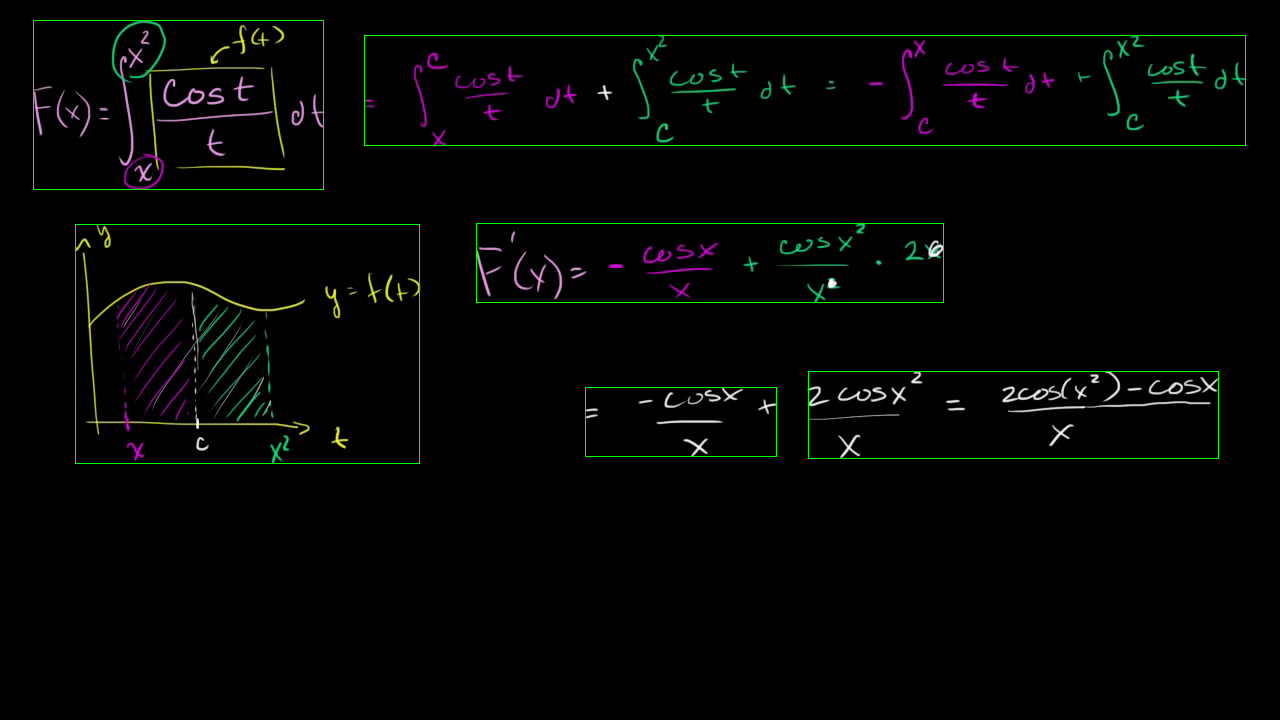 F(x) = ∫_x^{x²} cos t / t dt
f(t)
= ∫_x^c cos t / t dt + ∫_c^{x²} cos t / t dt = - ∫_c^x cos t / t dt + ∫_c^{x²} cos t / t dt
y
y = f(t)
x c x² t
F'(x) = - cos x / x + cos x² / x² · 2x
= - cos x / x + 2 cos x² / x = 2cos(x²) - cos x / x